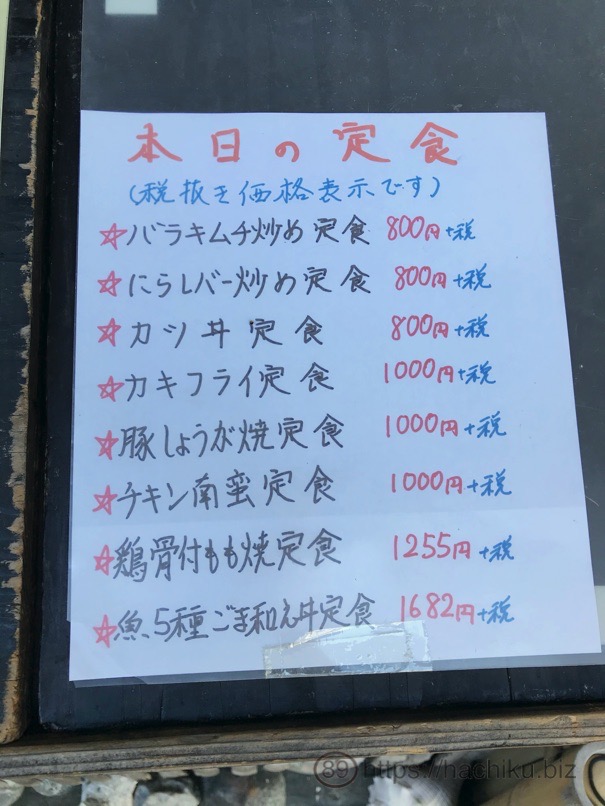 本日の定食
(税抜き価格表示です)
☆バラキムチ炒め定食 800円+税
☆にらレバー炒め定食 800円+税
☆カツ丼定食 800円+税
☆カキフライ定食 1000円+税
☆豚しょうが焼定食 1000円+税
☆チキン南蛮定食 1000円+税
☆鶏骨付もも焼定食 1255円+税
☆魚、5種ごま和え丼定食 1682円+税
89 https://hachiku.biz